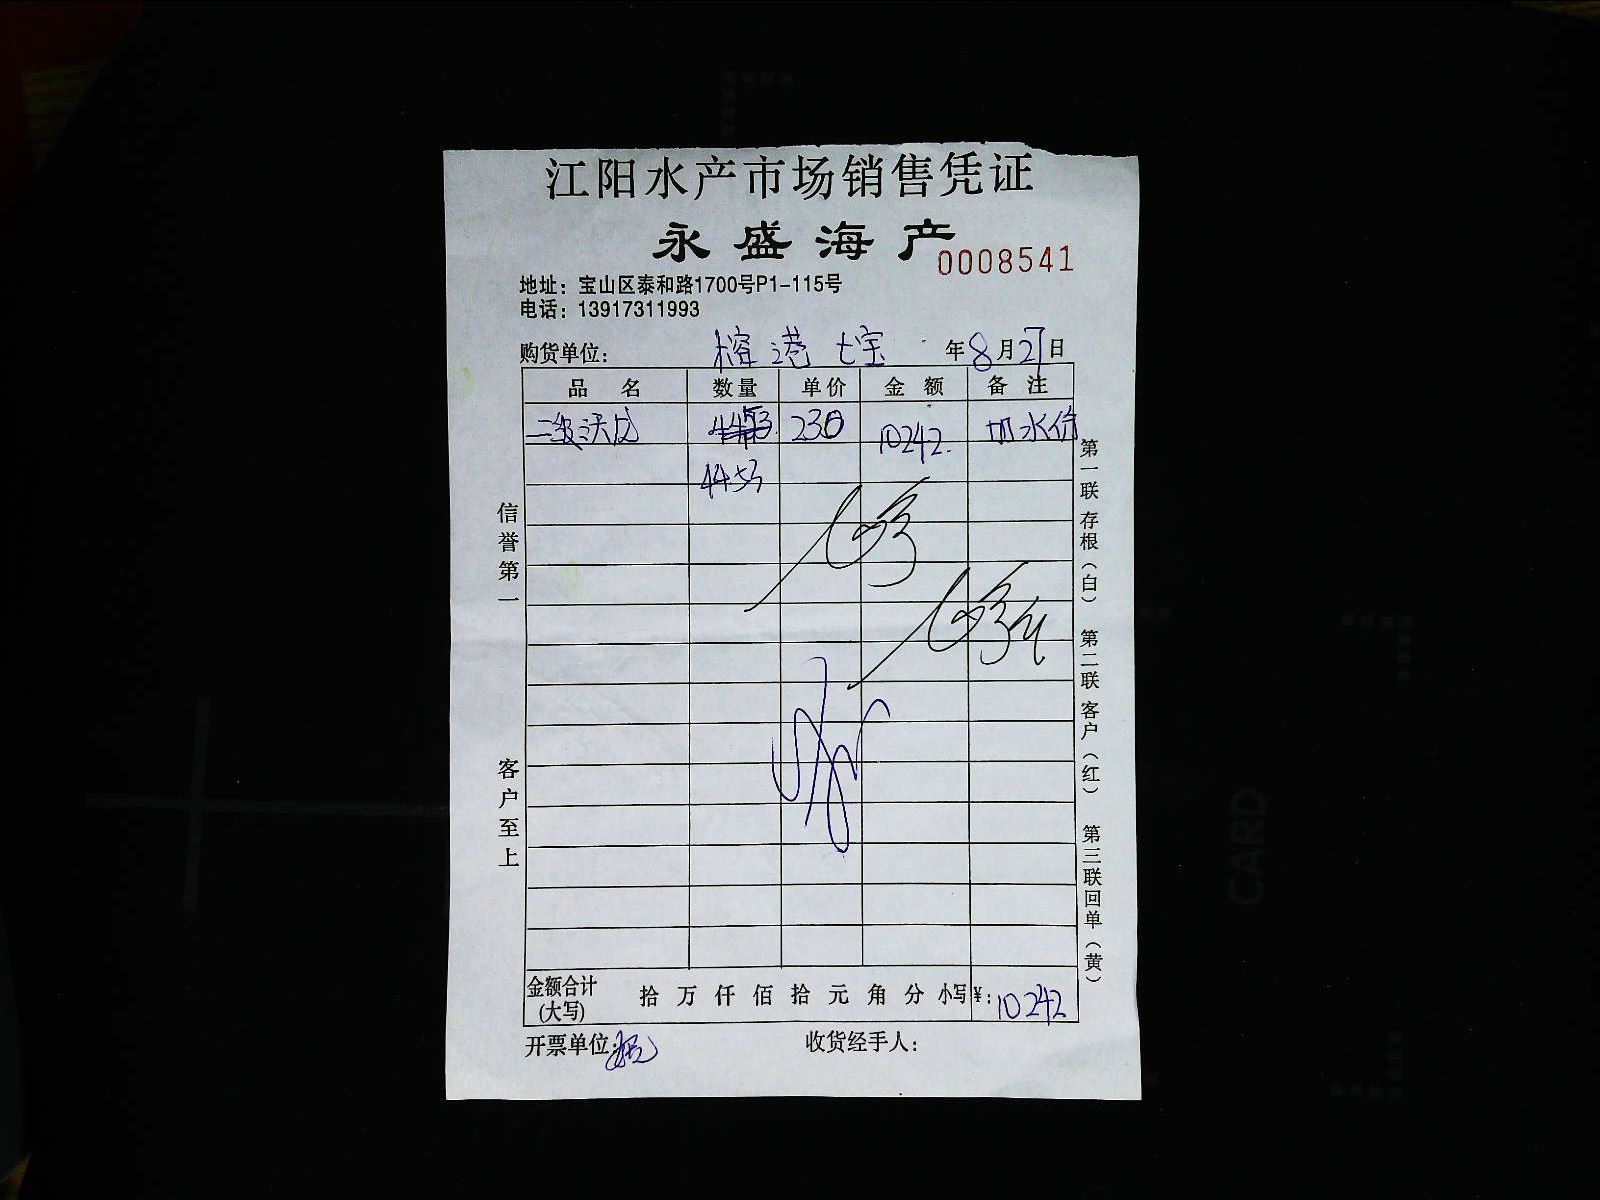 江阳水产市场销售凭证
永盛海产
0008541
地址：宝山区泰和路1700号P1-115号
电话：13917311993
购货单位： 榕港 七宝 年8月27日
品名 数量 单价 金额 备注
二级 230 10242. 加水价
44.53
信誉第一
客户至上
第一联 存根（白） 第二联 客户（红） 第三联 回单（黄）
金额合计（大写） 拾 万 仟 佰 拾 元 角 分 小写¥：10242
开票单位：
收货经手人：